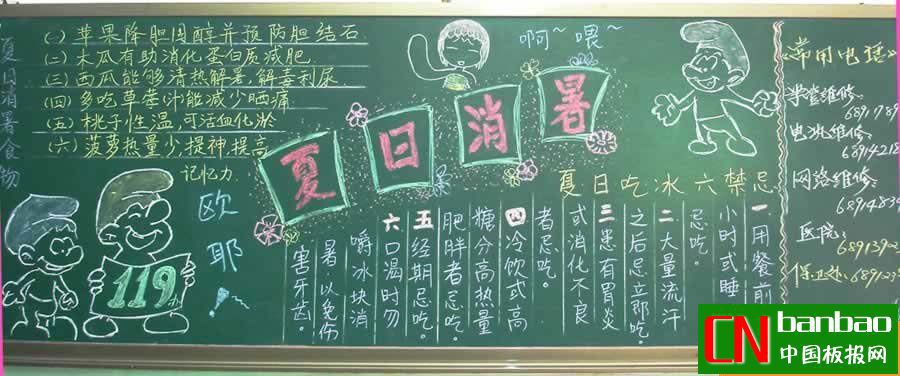 夏日消暑食物
(一) 苹果降胆固醇并预防胆结石
(二) 木瓜有助消化蛋白质减肥
(三) 西瓜能够清热解暑,解毒利尿
(四) 多吃草莓汁能减少晒痛
(五) 桃子性温,可活血化淤
(六) 菠萝热量少,提神提高
记忆力
欧耶!
119
啊~喂~
夏日消暑
夏日吃冰六禁忌
一用餐前
小时或睡
忌吃。
二大量流汗
之后忌立即吃。
三患有胃炎
或消化不良
者忌吃。
四冷饮或高
糖分高热量
肥胖者忌吃。
五经期忌吃。
六口渴时勿
嚼冰块消
暑以免伤
害牙齿。
《常用电话》
维修:
电池维修:
网络维修:
医院:
保卫处:
CN banbao
中国板报网